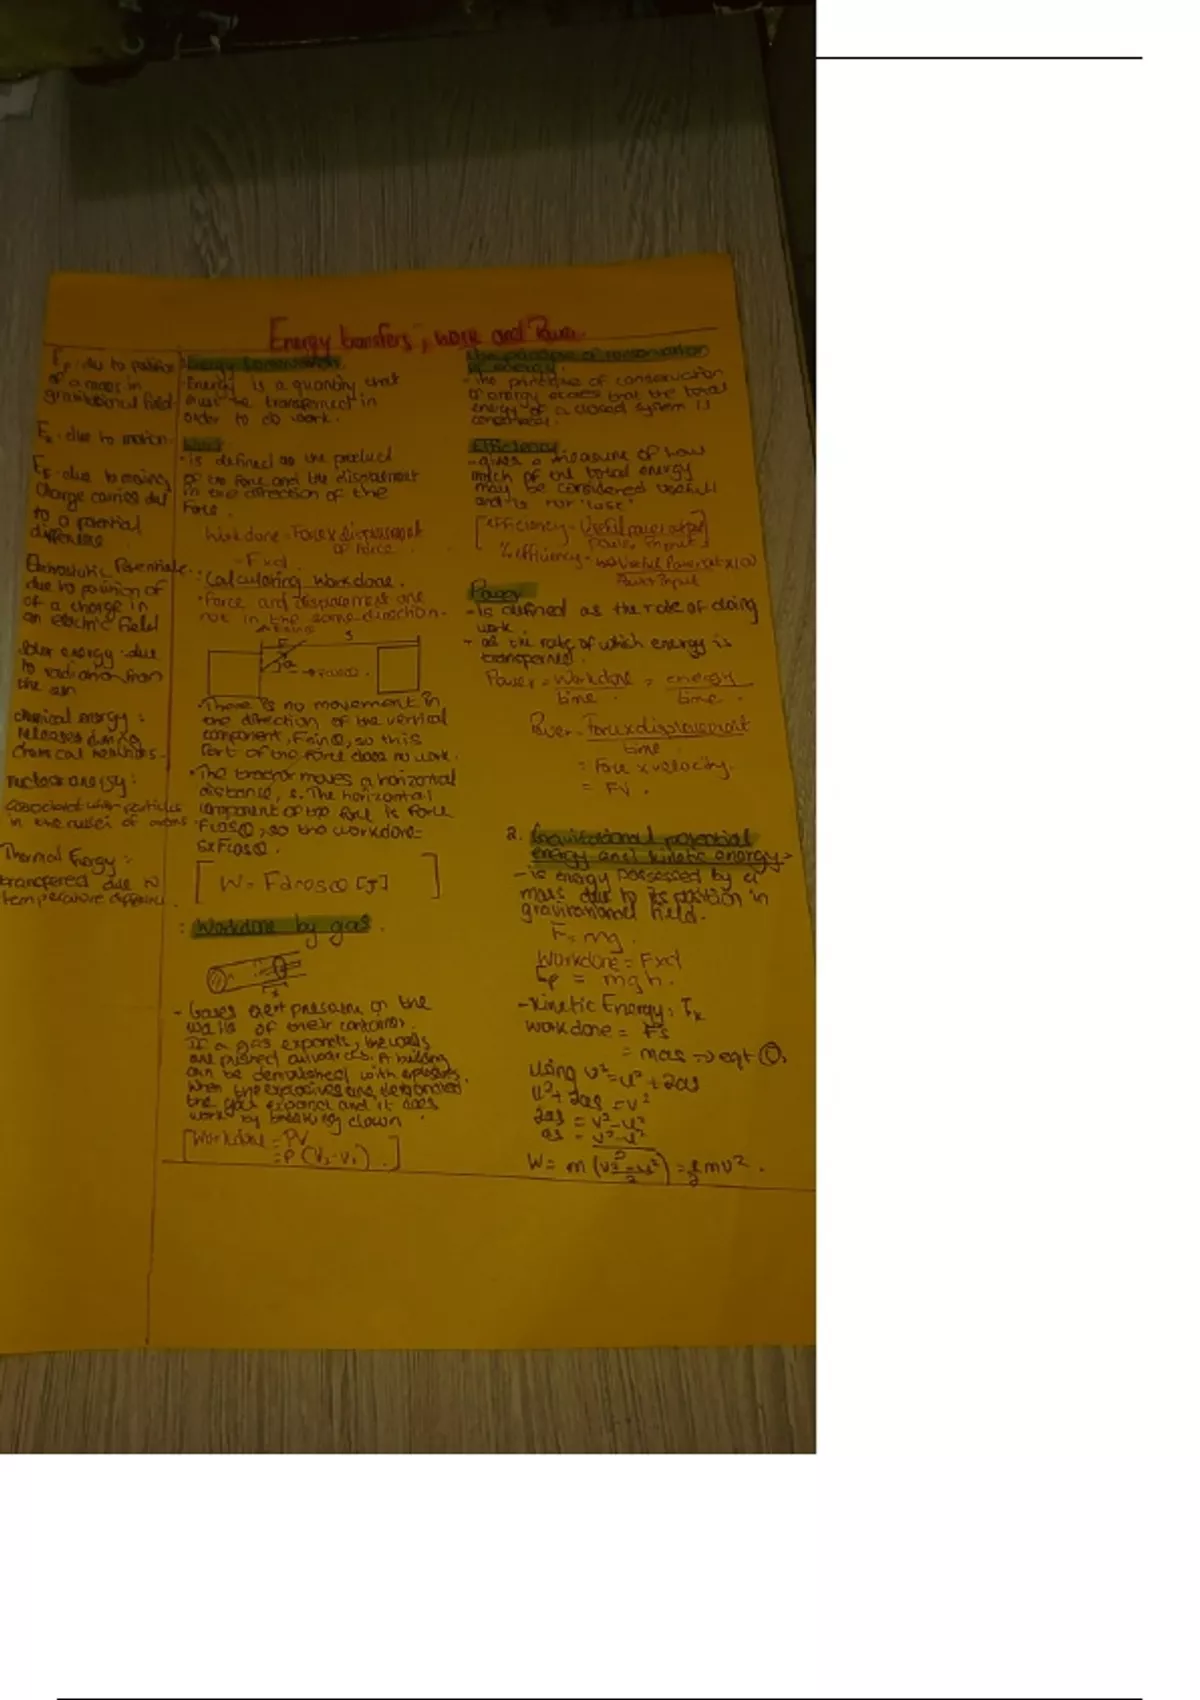 Energy transfers, work and Power.
Ep - due to position
of a mass in
gravitational field
Ek - due to motion
EE - due to moving
charge carries due
to a potential
difference
Electrostatic Potential -
due to position of
of a charge in
an electric field
Solar energy - due
to radiation from
the sun
chemical energy:
releases during
chemical reactions -
nuclear energy:
associated with particles
in the nuclei of atoms
Thermal Energy:
transfered due to
temperature difference.
Energy
- Energy is a quantity that
must be transferred in
order to do work.
Work
- is defined as the product
of the force and the displacement
in the direction of the
force.
Workdone = Force x displacement
of force
= Fxd
: Calculating workdone.
- Force and displacement are
not in the same direction.
F
s
Fcosθ
• There is no movement in
the direction of the vertical
component, Fsinθ, so this
part of the force does no work.
• The tractor moves a horizontal
distance, s. The horizontal
component of the force is force
Fcosθ, so the workdone =
SxFcosθ.
[W = Fdcosθ [J]]
: Workdone by gas.
x
- Gases exert pressure on the
walls of their container.
If a gas expands, the walls
are pushed outwards. A building
can be demolished with explosives.
When the explosives are detonated
the gas expand and it does
work by breaking down
[Workdone = PV
= P (V2 - V1).]
The principle of conservation
of energy.
- The principle of conservation
of energy states that the total
energy of a closed system is
Efficiency
- gives a measure of how
much of the total energy
may be considered usefull
and is not 'lost'
[efficiency = Useful power output
Power input]
% efficiency = Useful Power out x100
Power Input
Power
- Is defined as the rate of doing
work.
- as the rate of which energy is
transferred.
Power = Workdone = energy
time . time .
Power = Force x displacement
time
= Force x velocity.
= FV.
2. Gravitational potential
energy and kinetic energy -
- is energy possessed by a
mass due to its position in
gravitational field.
F = mg.
Workdone = Fxd
Ep = mgh.
- Kinetic Energy: Ek
workdone = Fs
= mas => eqt ①,
using v² = u² + 2as
u² + 2as = v²
2as = v² - u²
as = v² - u²
2
W = m (v² - u²) = 1 mv².
2 2